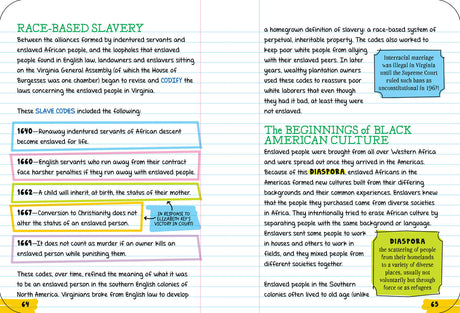 RACE-BASED SLAVERY
Between the alliances formed by indentured servants and
enslaved African people, and the loopholes that enslaved
people found in English law, landowners and enslavers sitting
on the Virginia General Assembly (of which the House of
Burgesses was one chamber) began to revise and CODIFY the
laws concerning the enslaved people in Virginia.
These SLAVE CODES included the following:
1640—Runaway indentured servants of African descent
become enslaved for life.
1660—English servants who run away from their contract
face harsher penalties if they run away with enslaved people.
1662—A child will inherit, at birth, the status of their mother.
1667—Conversion to Christianity does not
alter the status of an enslaved person.
IN RESPONSE TO
ELIZABETH KEY'S
VICTORY IN COURT!
1669—It does not count as murder if an owner kills an
enslaved person while punishing them.
These codes, over time, refined the meaning of what it was
to be an enslaved person in the southern English colonies of
North America. Virginians broke from English law to develop
64
a homegrown definition of slavery: a race-based system of
perpetual, inheritable property. The codes also worked to
keep poor white people from allying
with their enslaved peers. In later
years, wealthy plantation owners
used these codes to reassure poor
white laborers that even though
they had it bad, at least they were
not enslaved.
Interracial marriage
was illegal in Virginia
until the Supreme Court
ruled such bans as
unconstitutional in 1967!
The BEGINNINGS OF BLACK
AMERICAN CULTURE
Enslaved people were brought from all over Western Africa
and were spread out once they arrived in the Americas.
Because of this DIASPORA, enslaved Africans in the
Americas formed new cultures built from their differing
backgrounds and their common experiences. Enslavers knew
that the people they purchased came from diverse societies
in Africa. They intentionally tried to erase African culture by
separating people with the same background or language.
Enslavers sent some people to work
in houses and others to work in
fields, and they mixed people from
different societies together.
DIASPORA
the scattering of people
from their homelands
to a variety of diverse
places, usually not
voluntarily but through
force or as refugees
Enslaved people in the Southern
colonies often lived to old age (unlike
65